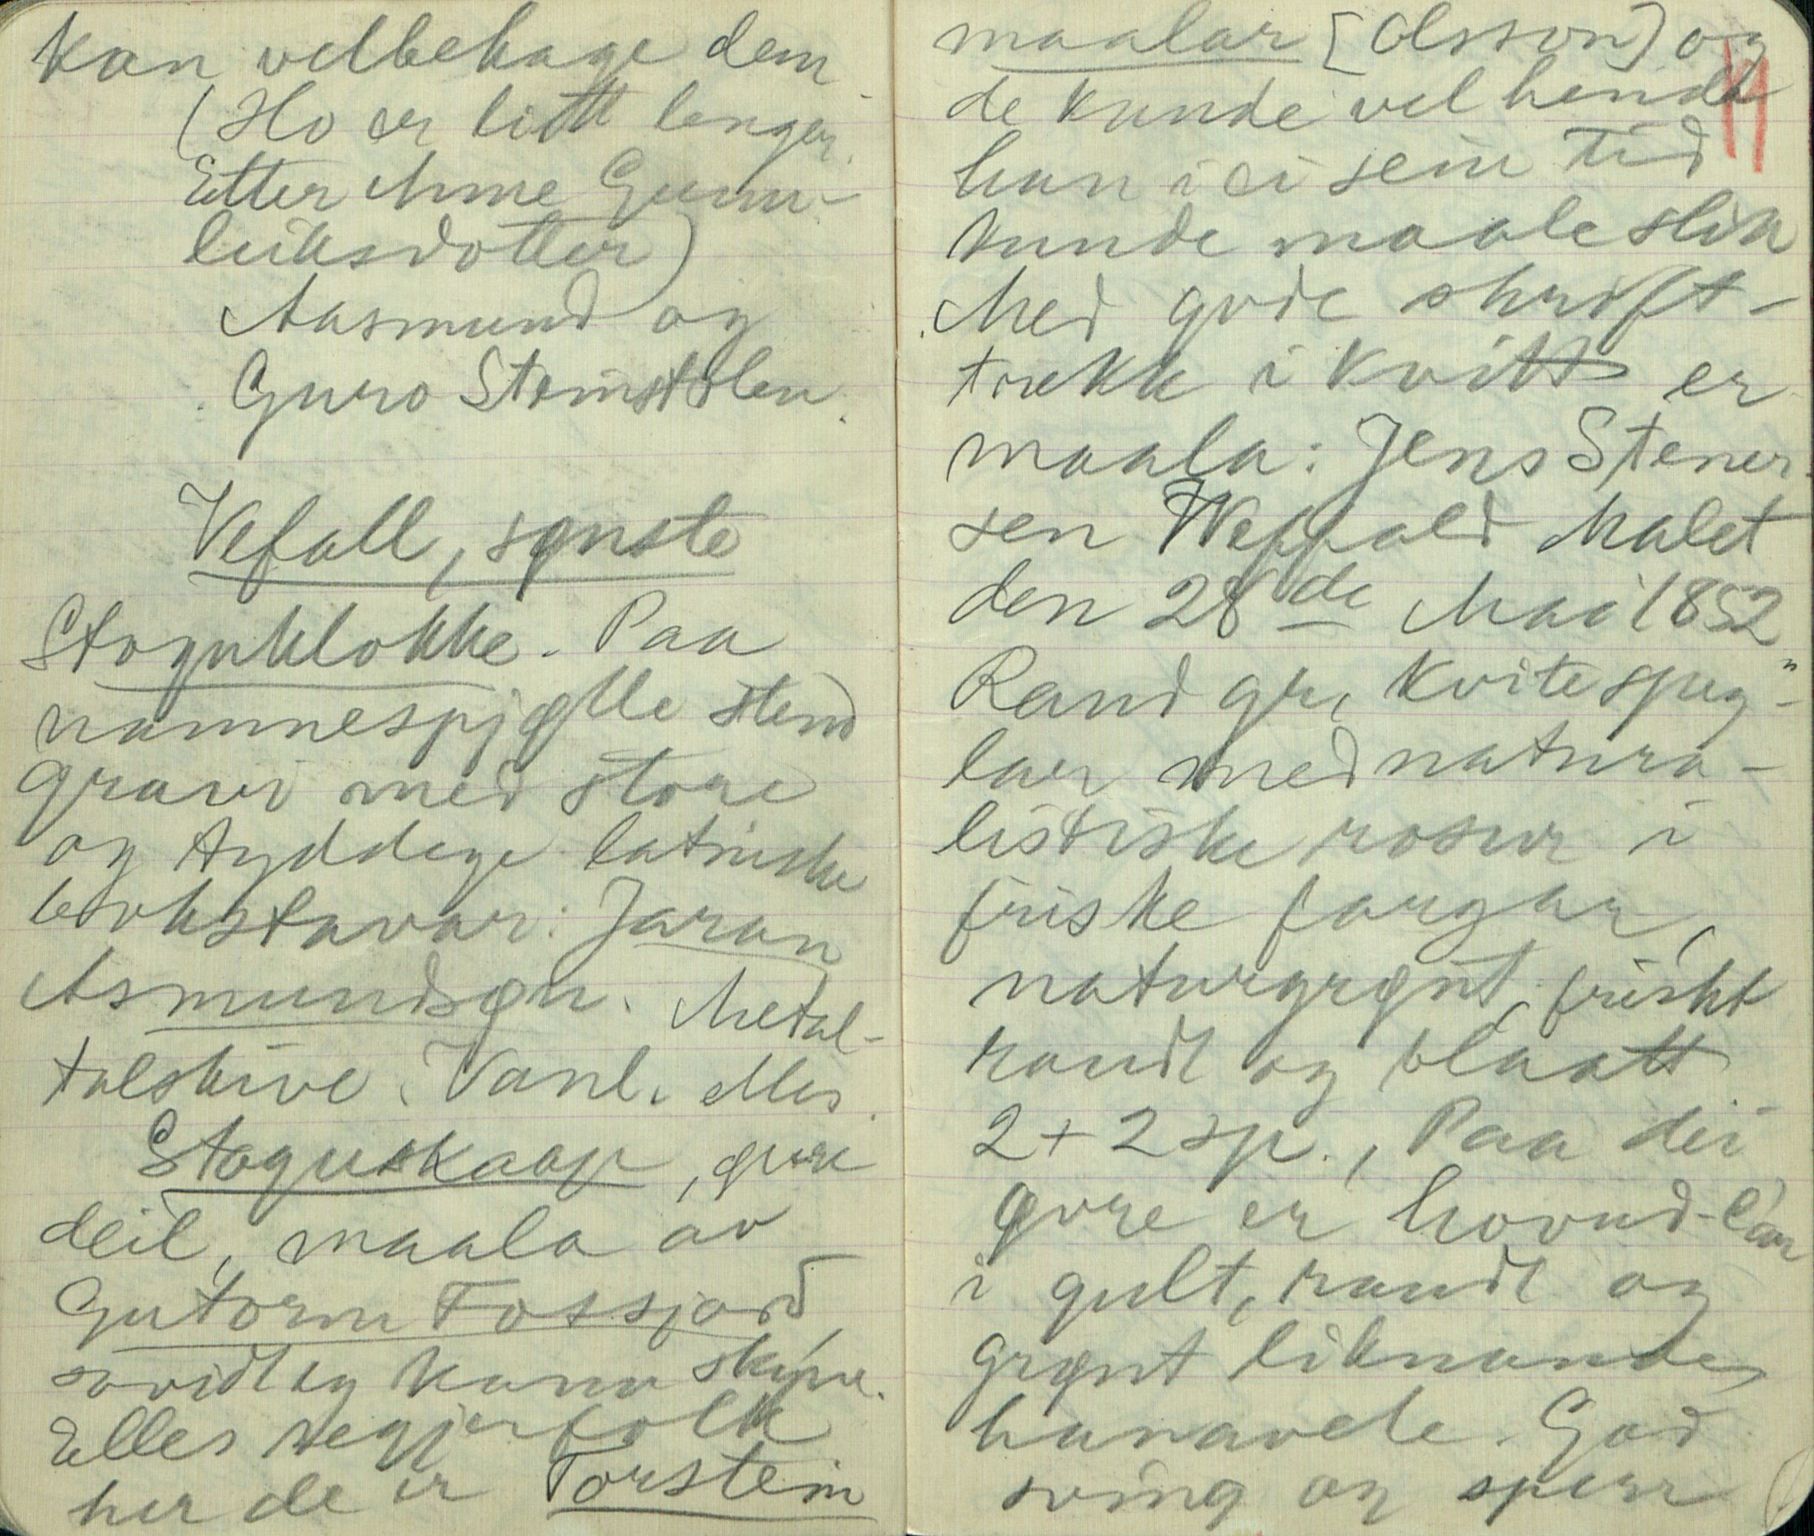 kan velbehage dem
(Ho er litt lenger.
Etter Anne Gunn-
leiksdotter)
Aasmund og
Guro Steinstølen.
Vefall, synste
Stoguklokke. Paa
namnespjølle stend
gravi med store
og tyddege latinske
bokstavar: Jaran
Asmundsøn. Metal-
talskive. Vanl. Mes.
Stoguskaap, øvre
deil, maala av
Gutorm Fossjord,
sovidt eg kann skyne.
Elles segjer folk
her de er Torstein
maalar [Olsson] og
de kunde vel hendt
han i ei sein tid
kunde maale slik
Med gode skrift-
trekk i kvitt er
maala: Jens Stener-
sen Weffald Malet
den 28de Mai 1852"
Rand gr, kvite speg-
lar med natura-
listiske rosur i
friske fargar,
naturgrønt, friskt
raudt og blaatt
2+2 sp., Paa dei
øvre er hovud-l'ar
i gult, raudt og
grønt liknande
hanavele. God
sving og sperr
11